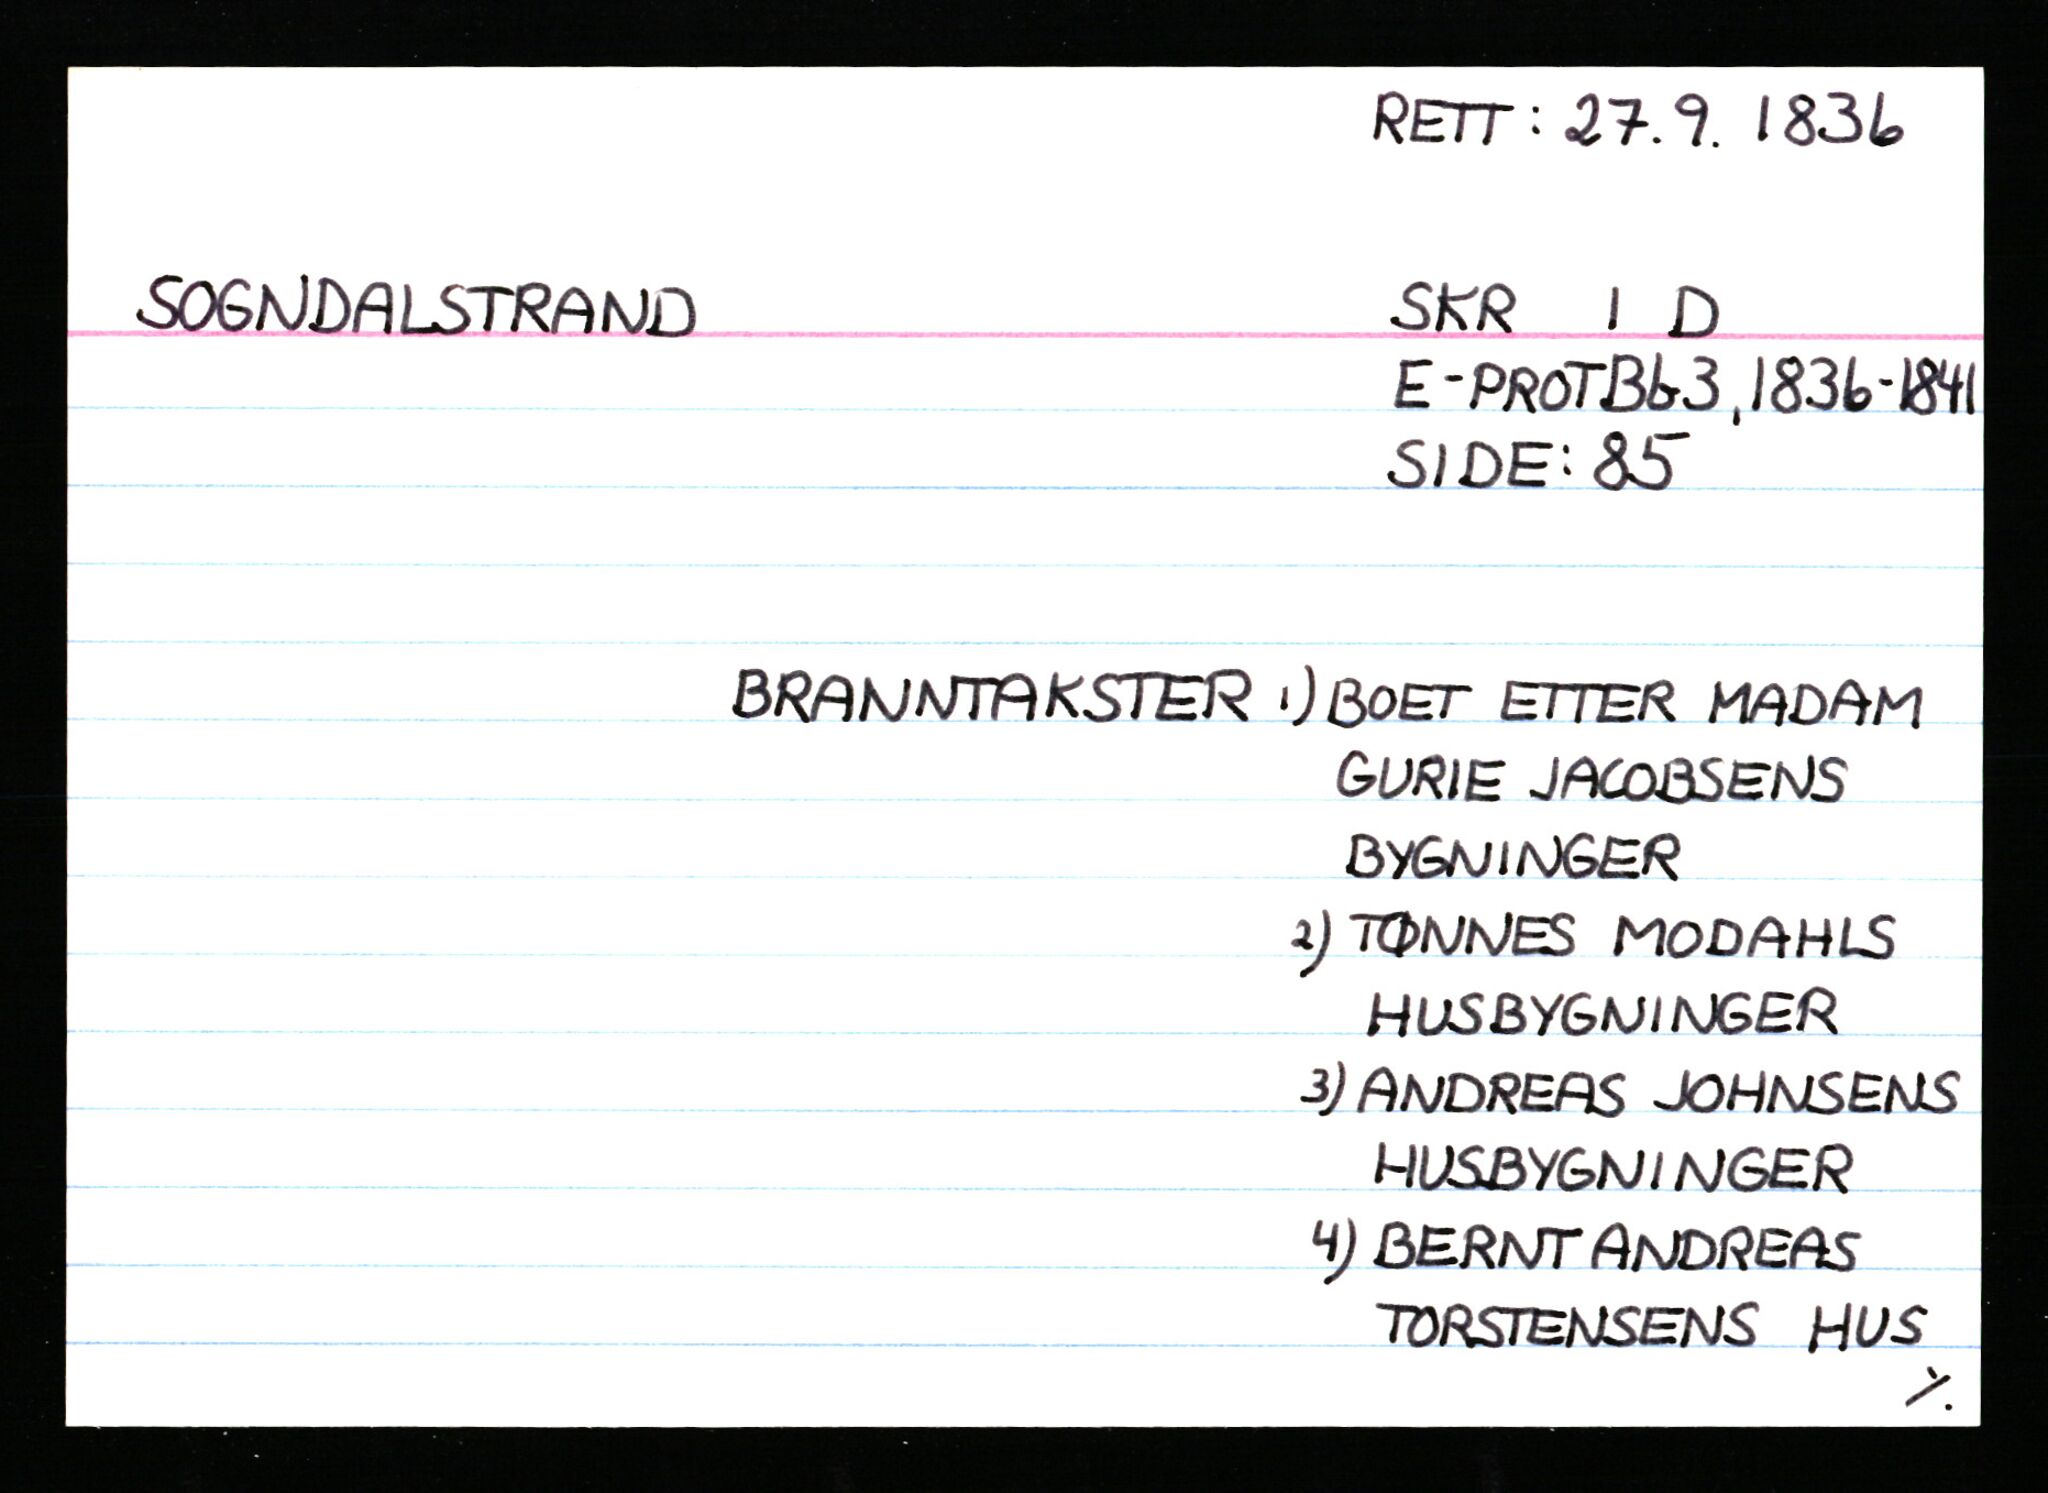 RETT: 27.9. 1836
SOGNDALSTRAND SKR 1 D
E-PROTBb3, 1836-1841
SIDE: 85
BRANNTAKSTER 1) BOET ETTER MADAM
GURIE JACOBSENS
BYGNINGER
2) TØNNES MODAHLS
HUSBYGNINGER
3) ANDREAS JOHNSENS
HUSBYGNINGER
4) BERNT ANDREAS
TORSTENSENS HUS
./.